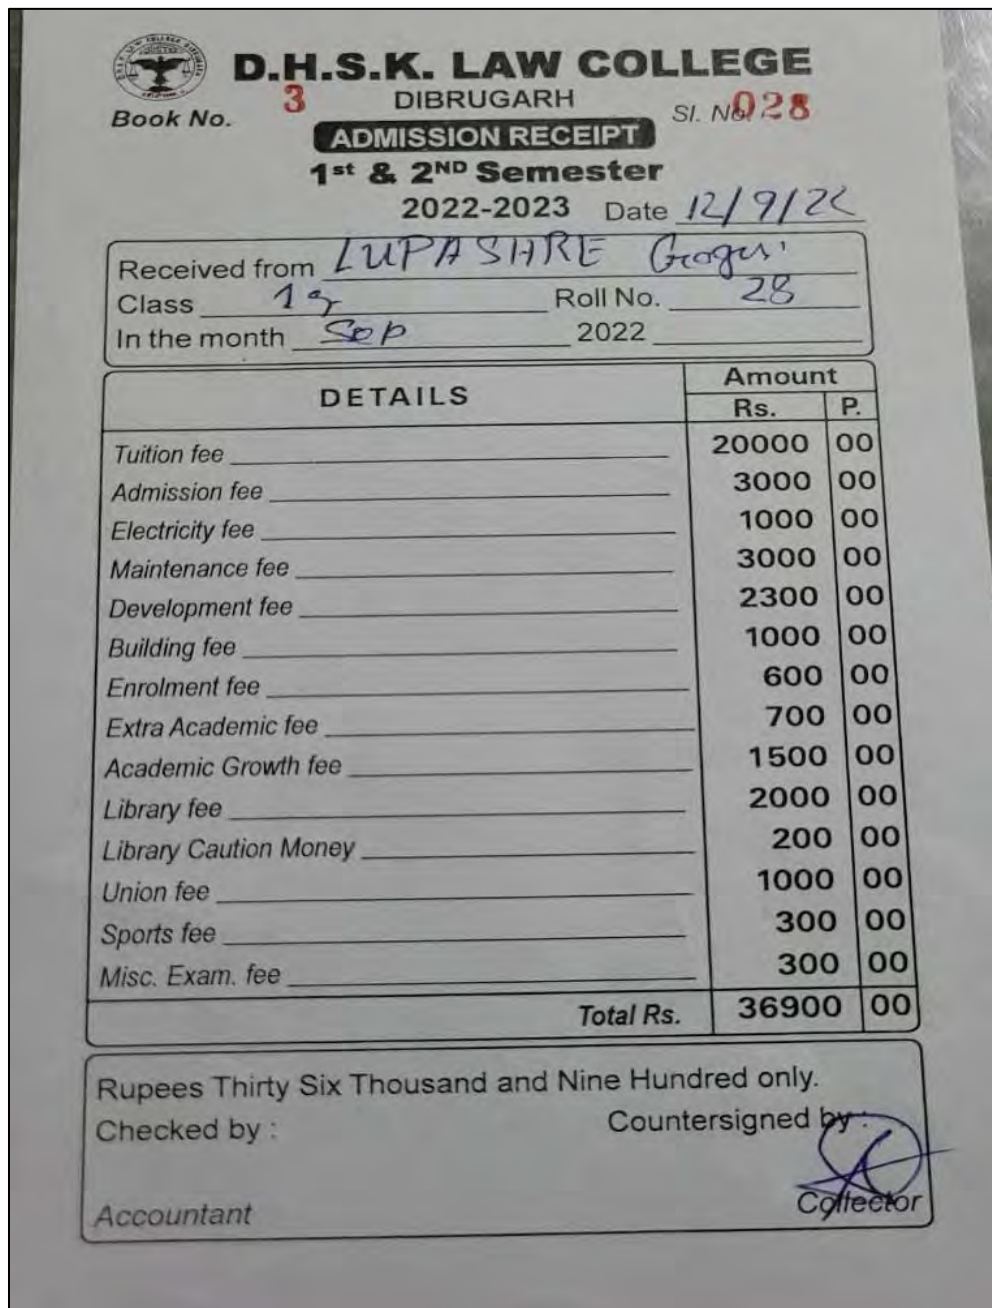 D.H.S.K. LAW COLLEGE
Book No. 3 DIBRUGARH Sl. No. 028
ADMISSION RECEIPT
1st & 2ND Semester
2022-2023 Date 12/9/22
Received from LUPASHRE
Class Roll No. 28
In the month Sep 2022
DETAILS Amount
Rs. P.
Tuition fee 20000 00
Admission fee 3000 00
Electricity fee 1000 00
Maintenance fee 3000 00
Development fee 2300 00
Building fee 1000 00
Enrolment fee 600 00
Extra Academic fee 700 00
Academic Growth fee 1500 00
Library fee 2000 00
Library Caution Money 200 00
Union fee 1000 00
Sports fee 300 00
Misc. Exam. fee 300 00
Total Rs. 36900 00
Rupees Thirty Six Thousand and Nine Hundred only.
Checked by : Countersigned by :
Accountant Collector